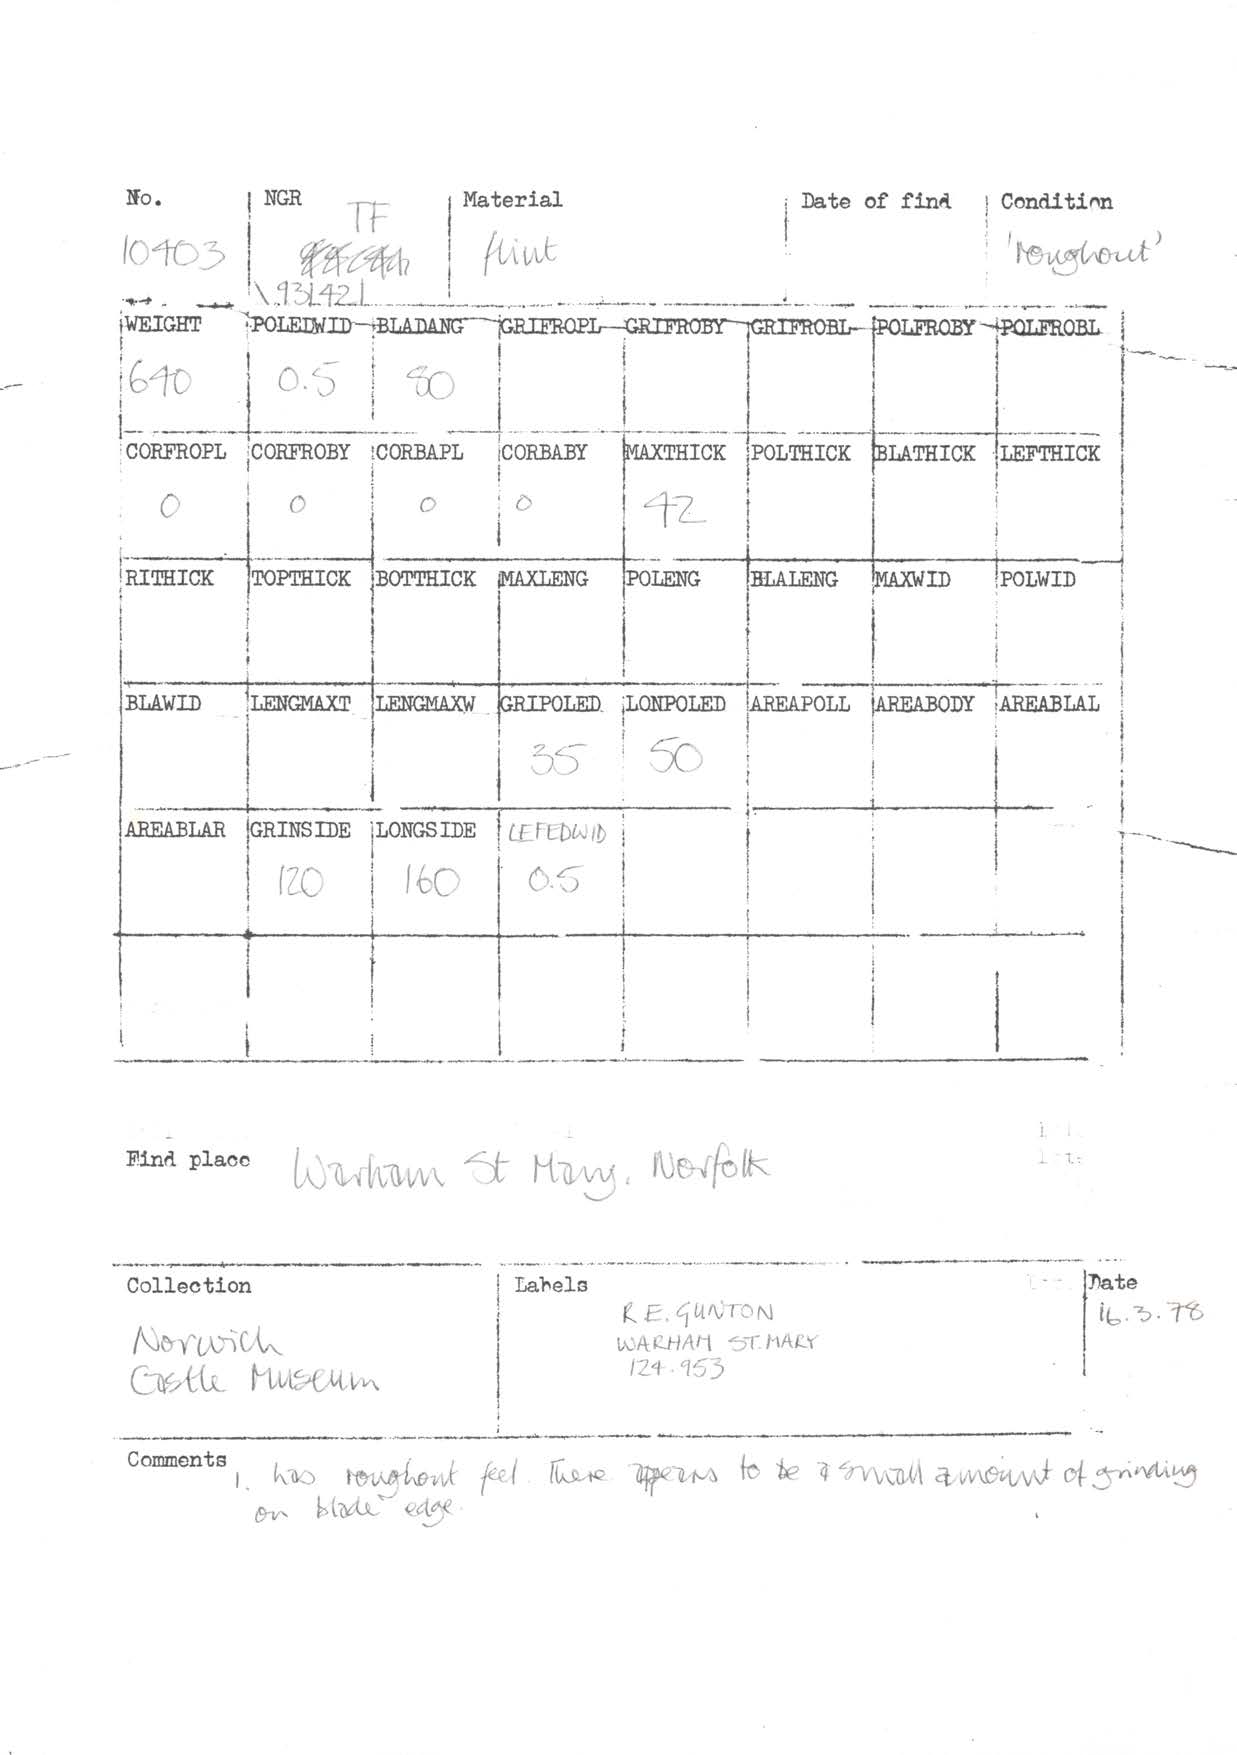 No. NGR Material Date of find Condition
10403 TF flint 'roughout'
\.93|42|
WEIGHT POLEDWID BLADANG GRIFROPL GRIFROBY GRIFROBL POLFROBY POLFROBL
640 0.5 80
CORFROPL CORFROBY CORBAPL CORBABY MAXTHICK POLTHICK BLATHICK LEFTHICK
0 0 0 0 42
RITHICK TOPTHICK BOTTHICK MAXLENG POLENG BLALENG MAXWID POLWID
BLAWID LENGMAXT LENGMAXW GRIPOLED LONPOLED AREAPOLL AREABODY AREABLAL
35 50
AREABLAR GRINSIDE LONGSIDE LEFEDWID
120 160 0.5
Find place Warham St Mary, Norfolk
Collection Labels Date
R.E. GUNTON 16.3.78
Norwich WARHAM ST. MARY
Castle Museum 124.953
Comments 1. has roughout feel. There appears to be a small amount of grinding
on blade edge.